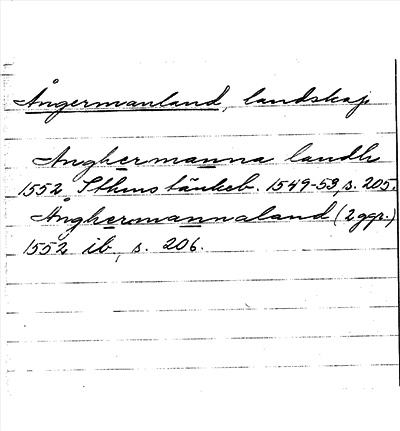 Ångermanland, landskap
Anghermanna landh
1552 Sthms tänkeb. 1549-53, s. 205.
Ånghermannaland (2 ggr.)
1552 ib., s. 206.